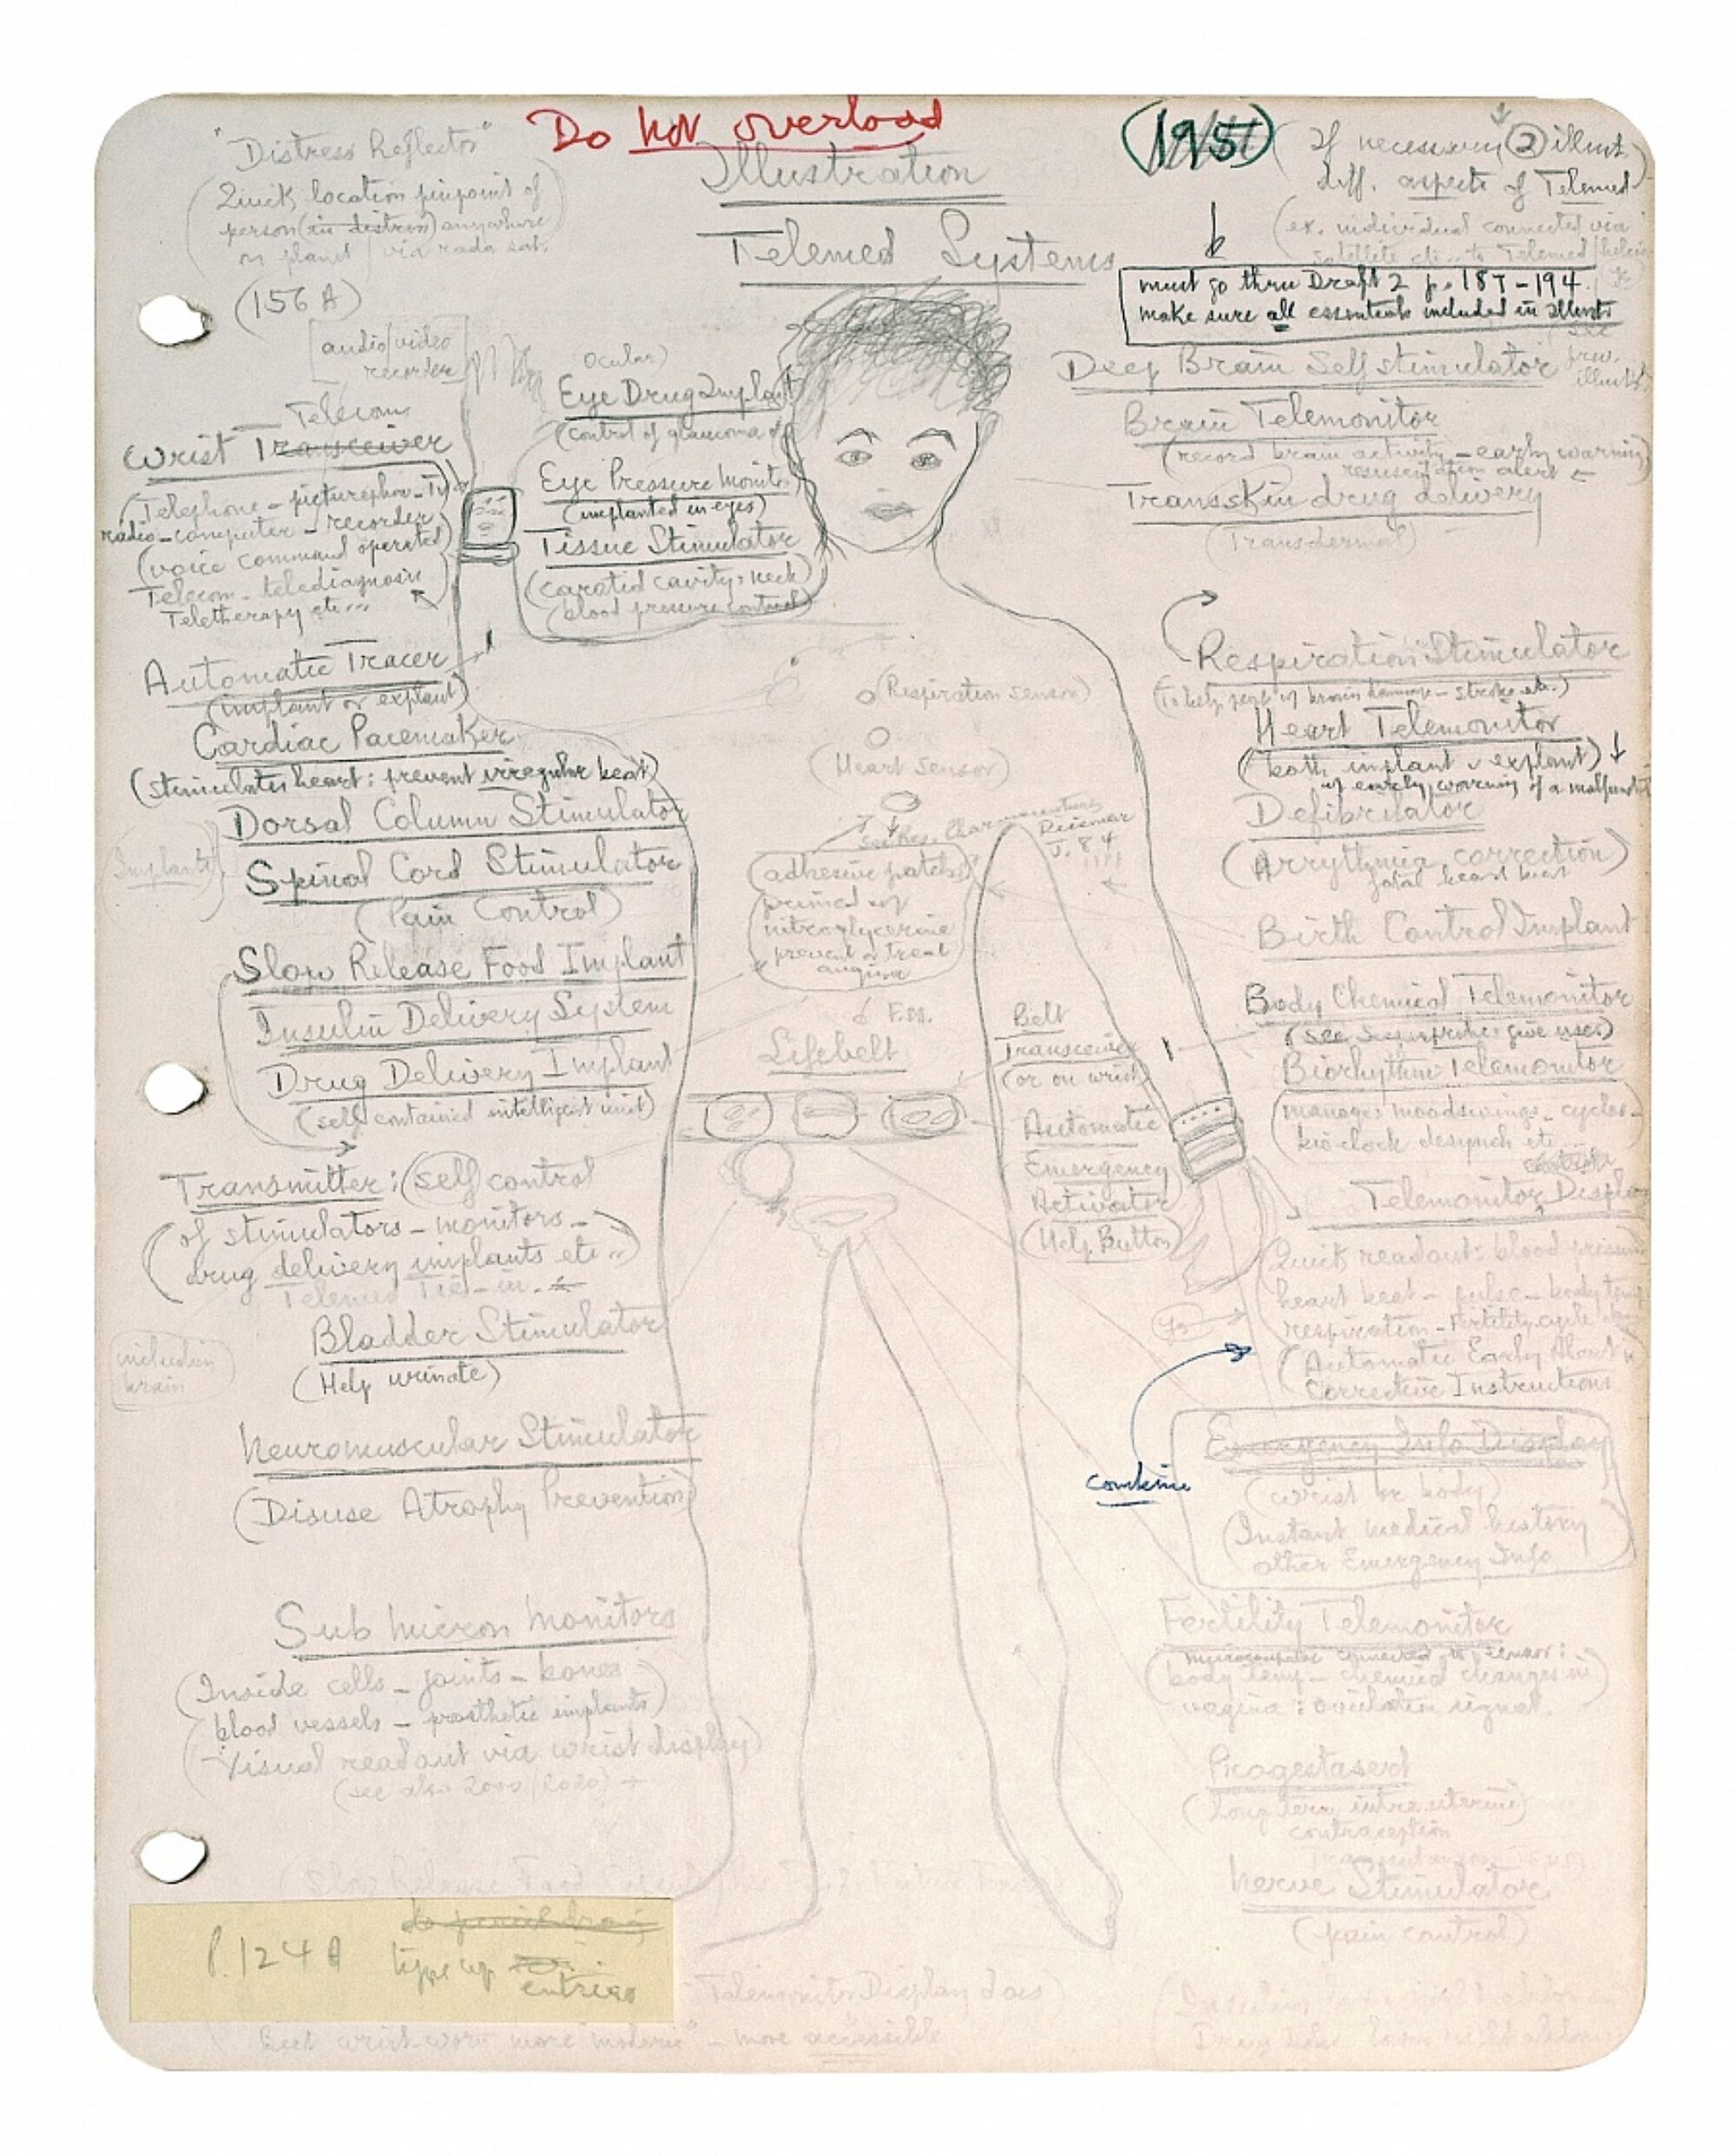 Do not overload
195
"Distress Reflector"
(Quick location pinpoint of
person (in distress) anywhere
on planet / via radio sat.
(156 A)
Illustration
Telemed Systems
If necessary 2 illust.
diff. aspects of Telemed
(ex. individual connected via
satellite etc.. to Telemed
must go thru Draft 2 p. 187-194
make sure all essentials included in illust.
see
prev.
illust.
[audio/video
recorder]
Telecom
Wrist Transceiver
(Telephone - picturephone - TV
radio - computer - recorder
(voice command operated)
Telecom - telediagnosis
Teletherapy etc...
Automatic Tracer
(implant or explant)
Cardiac Pacemaker
(stimulates heart: prevent irregular beat)
Dorsal Column Stimulator
Implants
Spinal Cord Stimulator
(Pain Control)
Slow Release Food Implant
Insulin Delivery System
Drug Delivery Implant
(self contained intelligent unit)
Transmitter: (self) control
(of stimulators - monitors -
drug delivery implants etc...)
Telemed Tie-in.
Bladder Stimulator
(Help urinate)
including
brain
Neuromuscular Stimulator
(Disuse Atrophy Prevention)
Sub micron monitors
(Inside cells - joints - bones
blood vessels - prosthetic implants)
Visual readout via wrist display)
(see also 2000/2020)
Ocular)
Eye Drug Implant
(control of glaucoma
Eye Pressure Monitor
(implanted in eyes)
Tissue Stimulator
(carotid cavity: neck)
(blood pressure control)
(Respiration sensor)
(Heart Sensor)
(adhesive patches
primed w/
nitroglycerine
prevent or treat
angina
Lifebelt
Belt
Transceiver
(or on wrist)
Automatic
Emergency
Activator
(Help Button)
Deep Brain Self stimulator
Brain Telemonitor
(record brain activity - early warning)
resuscitation alert
Transskin drug delivery
(Transdermal)
Respiration Stimulator
(To help people w/ brain damage - stroke etc.)
Heart Telemonitor
(both implant & explant)
w/ early warning of a malfunction
Defibrilator
(Arrythmia correction)
fatal heart beat
Birth Control Implant
Body Chemical Telemonitor
(see : give uses)
Biorhythm Telemonitor
(manages moodswings - cycles -
bioclock desynch etc...
Telemonitor Display
Quick readout: blood pressure
heart beat - pulse - body temp
respiration - Fertility cycle
(Automatic Early Alert w/
Corrective Instructions
combine
Emergency Info Display
(wrist or body)
(Instant medical history
other Emergency Info
Fertility Telemonitor
microcomputer connected to sensor:
body temp - chemical changes in
vagina: ovulation signal.
Progestasert
(Long term intrauterine)
contraception
Nerve Stimulator
(pain control)
P. 124 A
type up
entries
Telemonitor Display does
Belt wrist-worn more "moderne" - more accessible